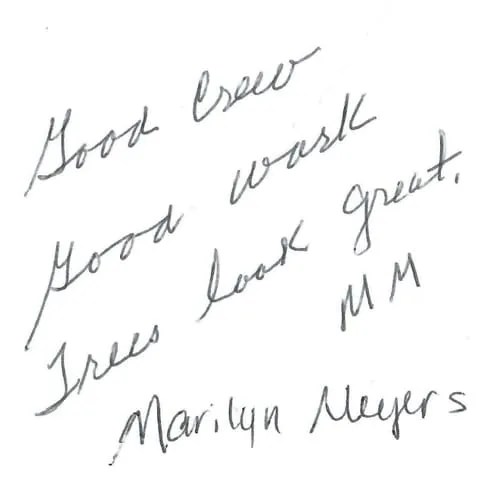 Good Crew
Good work
Trees look great.
MM
Marilyn Meyers